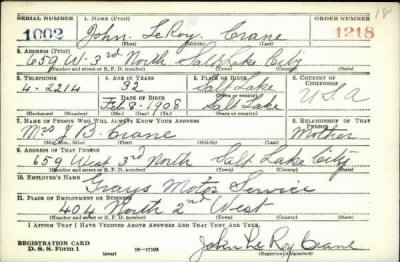 18
SERIAL NUMBER 1. NAME (Print) ORDER NUMBER
1002 John LeRoy Crane 1218
(First) (Middle) (Last)
2. ADDRESS (Print)
659 W. 3rd North Salt Lake City
(Number and street or R. F. D. number) (Town) (County) (State)
3. TELEPHONE 4. AGE IN YEARS 5. PLACE OF BIRTH 6. COUNTRY OF CITIZENSHIP
4-2214 32 Salt Lake U.S.A
DATE OF BIRTH (Town or county)
Feb 8-1908 Salt Lake
(Exchange) (Number) (Mo.) (Day) (Yr.) (State or country)
7. NAME OF PERSON WHO WILL ALWAYS KNOW YOUR ADDRESS 8. RELATIONSHIP OF THAT PERSON
Mrs J B. Crane Mother
(Mr., Mrs., Miss) (First) (Middle) (Last)
9. ADDRESS OF THAT PERSON
659 West 3rd North Salt Lake City
(Number and street or R. F. D. number) (Town) (County) (State)
10. EMPLOYER'S NAME
Grays Motor Service
11. PLACE OF EMPLOYMENT OR BUSINESS
404 North 2nd West
(Number and street or R. F. D. number) (Town) (County) (State)
I AFFIRM THAT I HAVE VERIFIED ABOVE ANSWERS AND THAT THEY ARE TRUE.
REGISTRATION CARD
D. S. S. FORM 1 (over) 16-17105 John Le Roy Crane
(Registrant's signature)